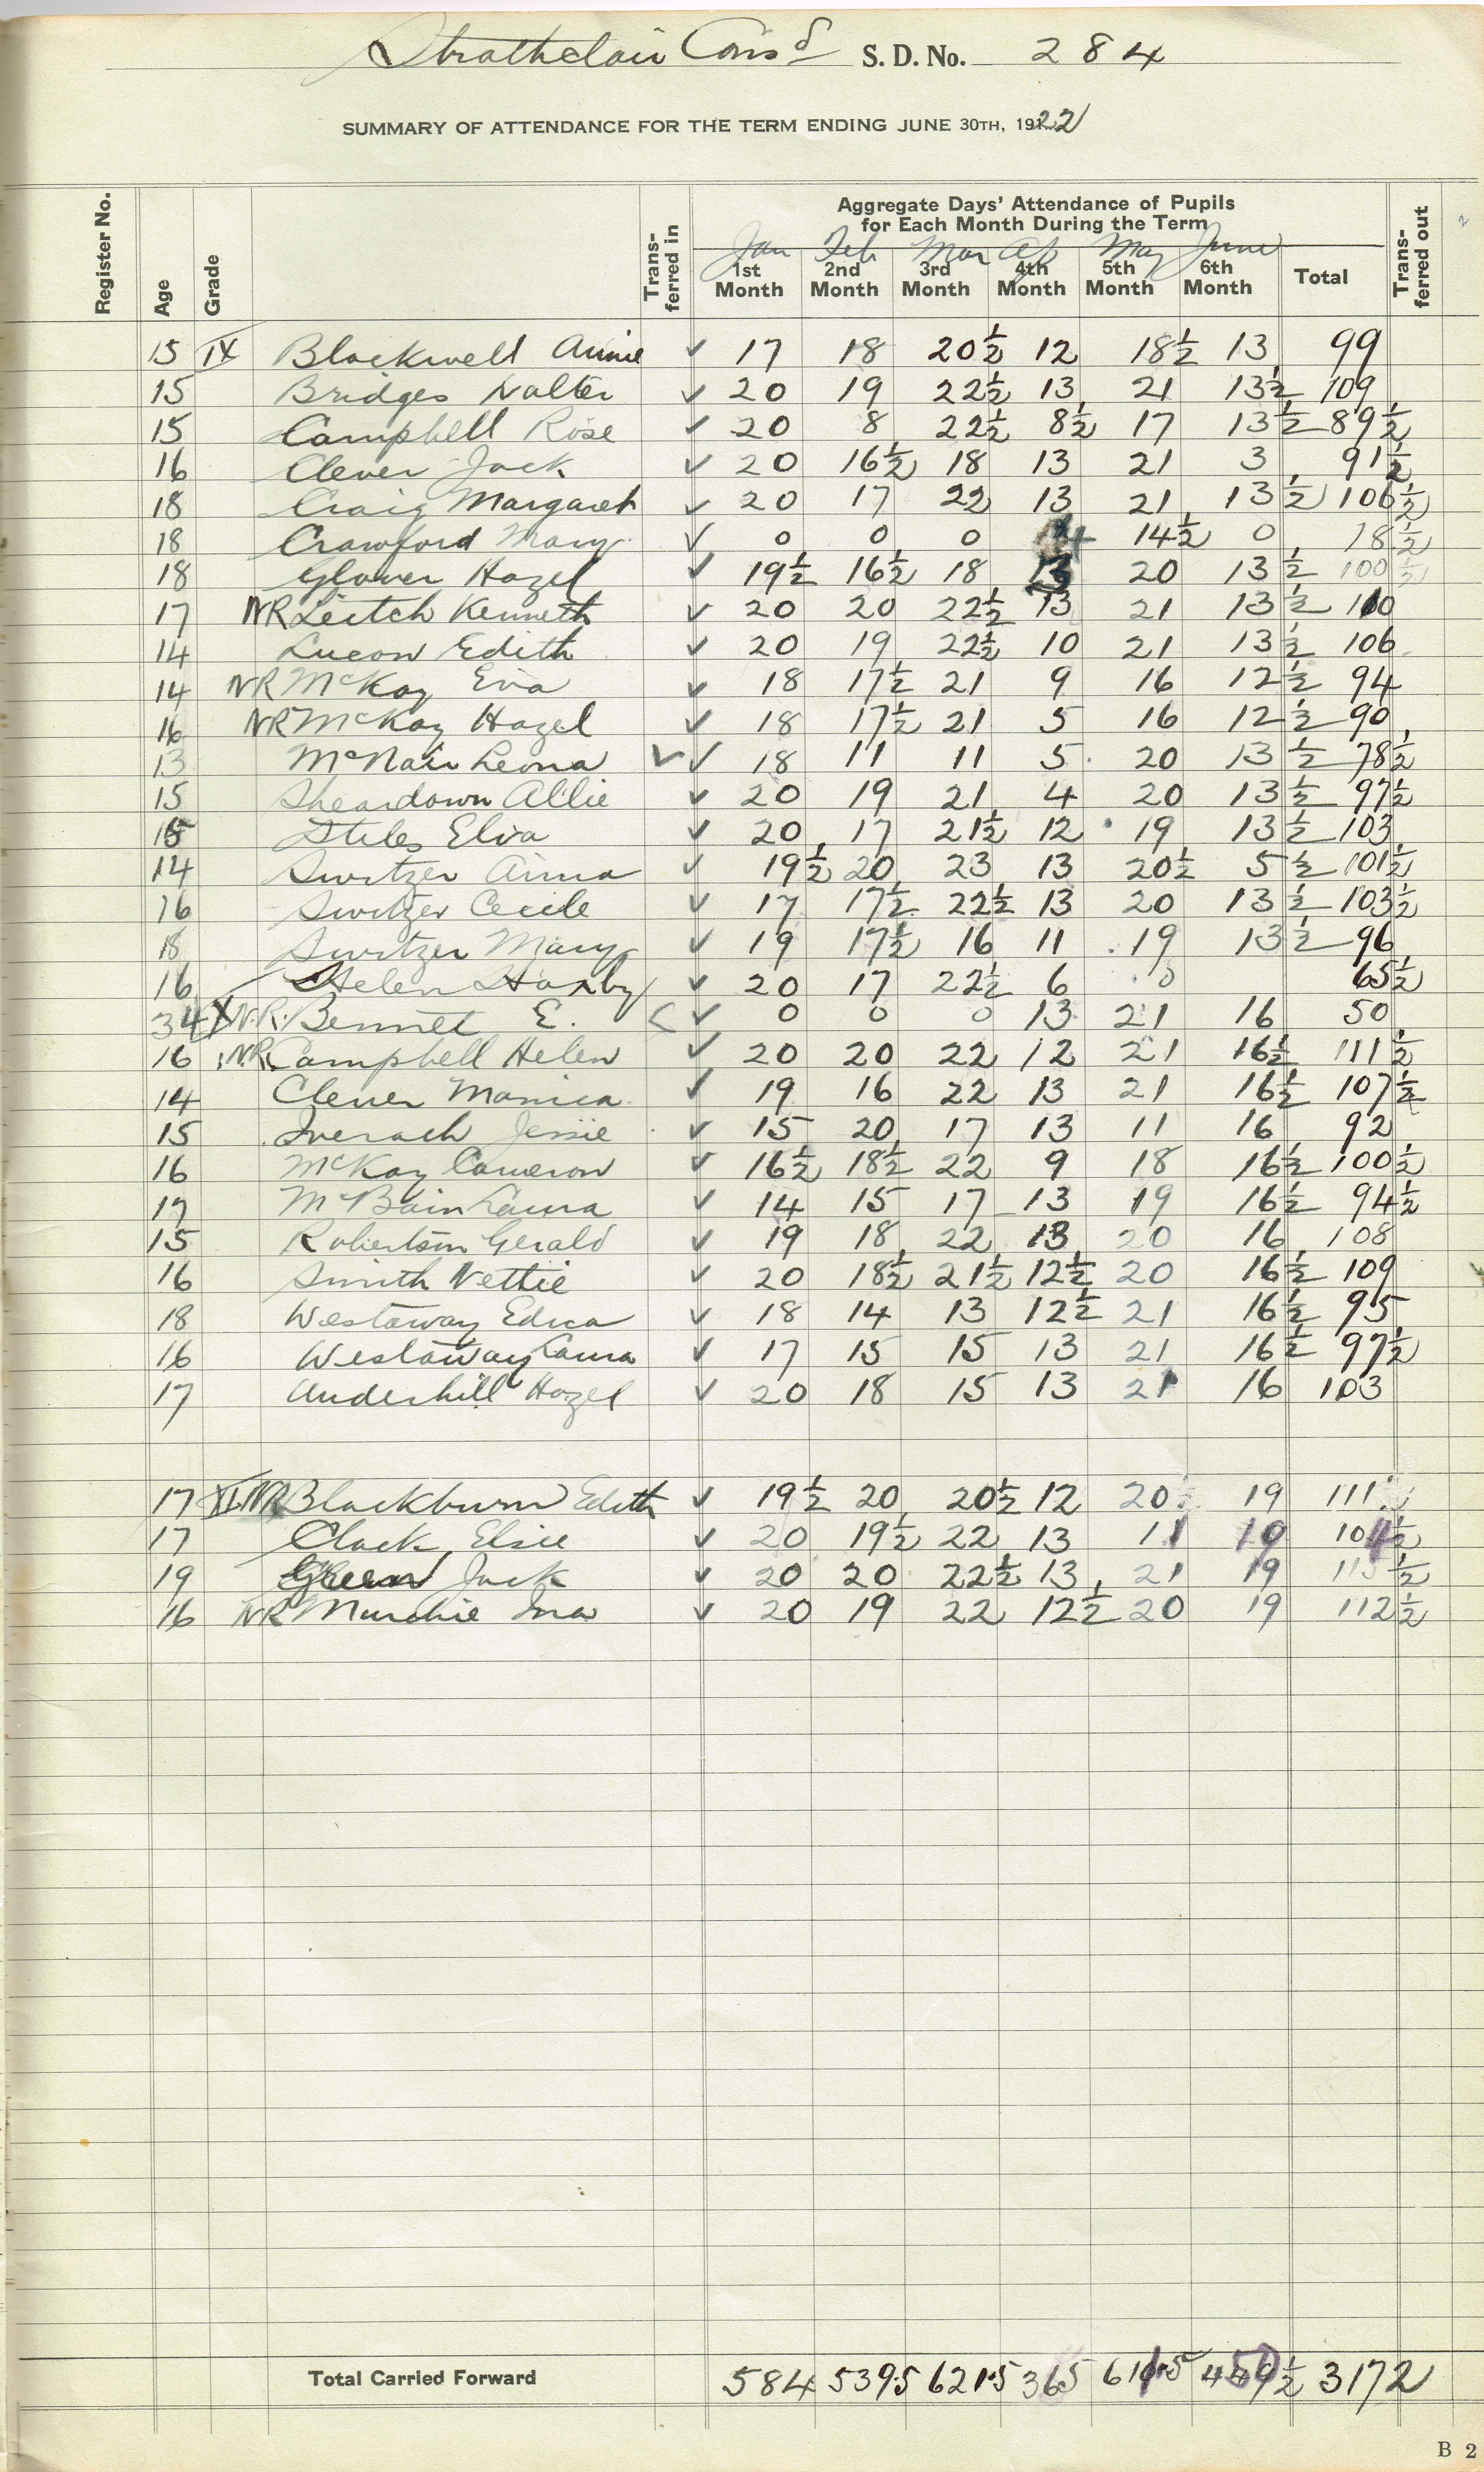 Strathclair Cons'd S. D. No. 284
SUMMARY OF ATTENDANCE FOR THE TERM ENDING JUNE 30TH, 1922
Register No. Age Grade Trans-ferred in Aggregate Days' Attendance of Pupils for Each Month During the Term Trans-ferred out
Jan Feb Mar Ap May June
1st Month 2nd Month 3rd Month 4th Month 5th Month 6th Month Total
15 IX Blackwell Annie ✓ 17 18 20½ 12 18½ 13 99
15 Bridges Walter ✓ 20 19 22½ 13 21 13½ 109
15 Campbell Rose ✓ 20 8 22½ 8½ 17 13½ 89½
16 Clever Jack ✓ 20 16½ 18 13 21 3 91½
18 Craig Margaret ✓ 20 17 22 13 21 13½ 106½
18 Crawford Mary ✓ 0 0 0 4 14½ 0 18½
18 Glover Hazel ✓ 19½ 16½ 18 13 20 13½ 100½
17 NR Leitch Kenneth ✓ 20 20 22½ 13 21 13½ 110
14 Lucow Edith ✓ 20 19 22½ 10 21 13½ 106
14 NR McKay Eva ✓ 18 17½ 21 9 16 12½ 94
16 NR McKay Hazel ✓ 18 17½ 21 5 16 12½ 90
13 McNair Leona ✓ ✓ 18 11 11 5 20 13½ 78½
15 Sheardown Allie ✓ 20 19 21 4 20 13½ 97½
15 Stiles Elva ✓ 20 17 21½ 12 19 13½ 103
14 Switzer Anna ✓ 19½ 20 23 13 20½ 5½ 101½
16 Switzer Cecile ✓ 17 17½ 22½ 13 20 13½ 103½
18 Switzer Mary ✓ 19 17½ 16 11 19 13½ 96
16 Helen Haxby ✓ 20 17 22½ 6 0 65½
34 X N.R. Bennet E. ✓ 0 0 0 13 21 16 50
16 NR Campbell Helen ✓ 20 20 22 12 21 16½ 111½
14 Clever Monica ✓ 19 16 22 13 21 16½ 107½
15 Inerach Jessie ✓ 15 20 17 13 11 16 92
16 McKay Cameron ✓ 16½ 18½ 22 9 18 16½ 100½
17 McBain Laura ✓ 14 15 17 13 19 16½ 94½
15 Robertson Gerald ✓ 19 18 22 13 20 16 108
16 Smith Nettie ✓ 20 18½ 21½ 12½ 20 16½ 109
18 Westaway Edna ✓ 18 14 13 12½ 21 16½ 95
16 Westaway Laura ✓ 17 15 15 13 21 16½ 97½
17 Underhill Hazel ✓ 20 18 15 13 21 16 103
17 XI NR Blackburn Edith ✓ 19½ 20 20½ 12 20 19 111
17 Clark Elsie ✓ 20 19½ 22 13 11 19 104½
19 Green Jack ✓ 20 20 22½ 13 21 19 115½
16 NR Murchie Ina ✓ 20 19 22 12½ 20 19 112½
Total Carried Forward 584 539.5 621.5 365 3172
B 2